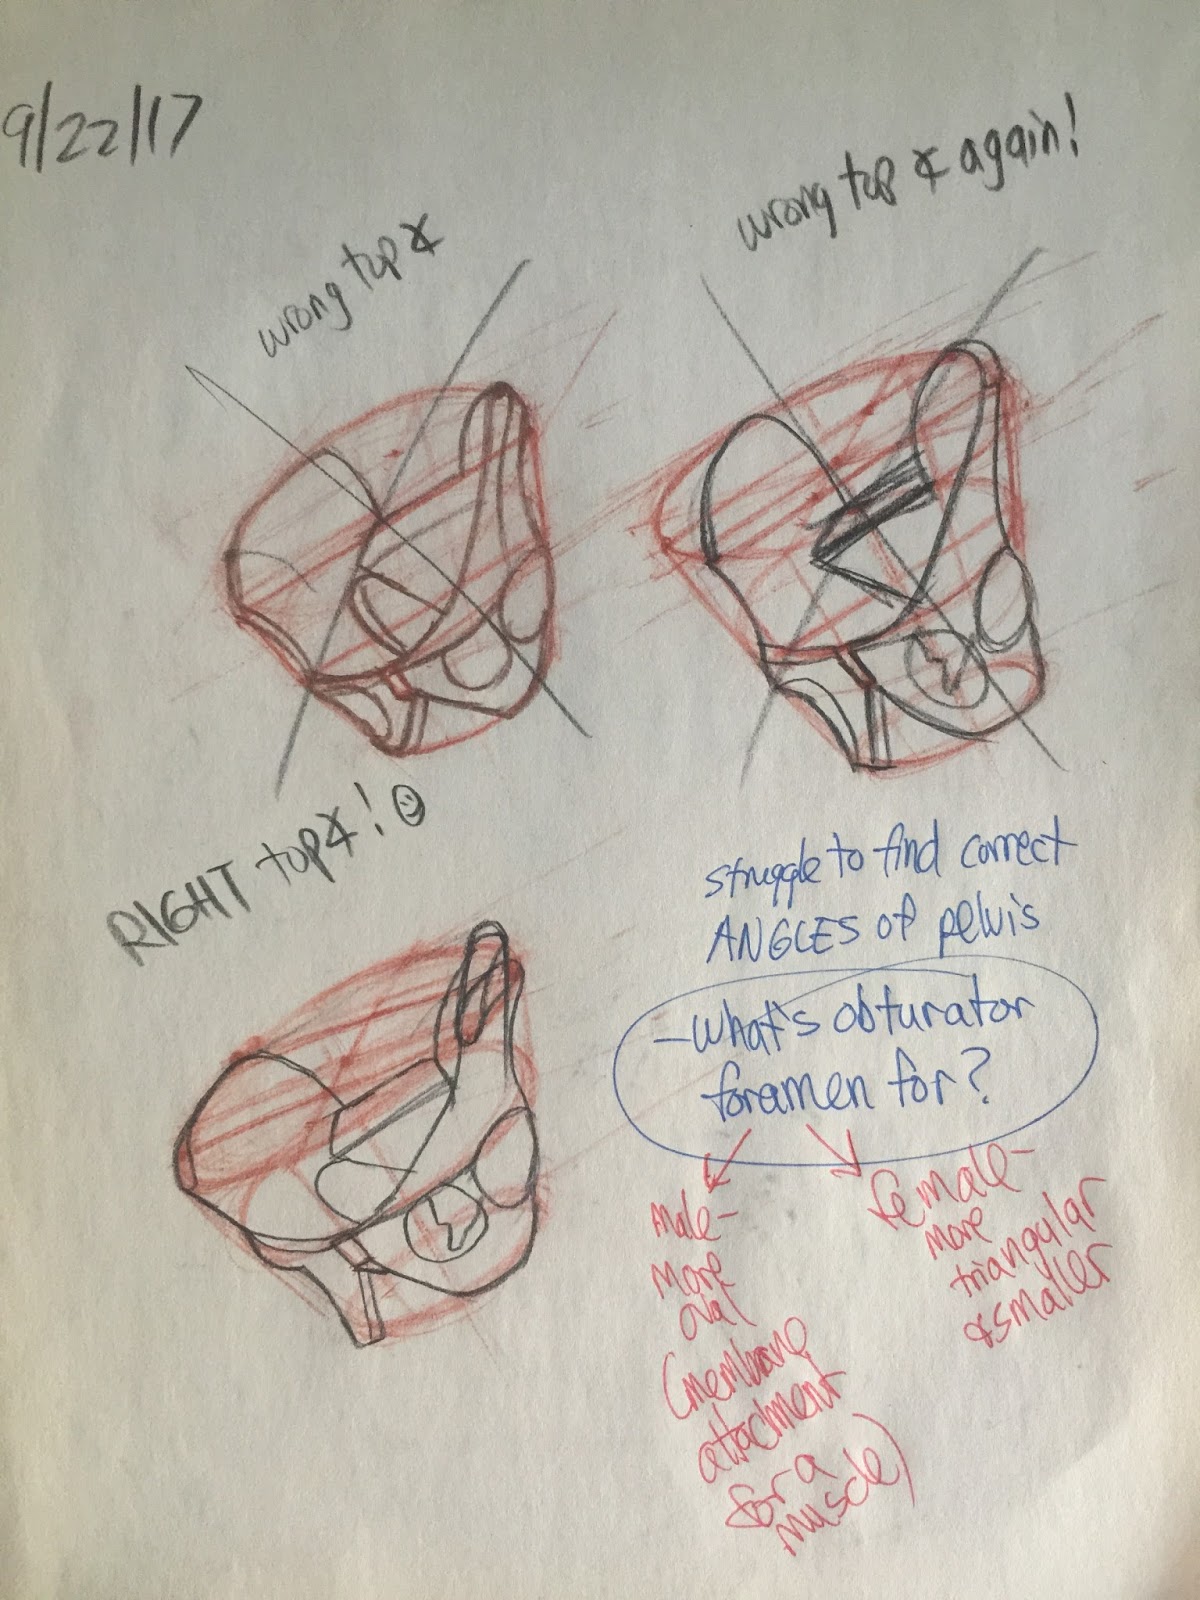 9/22/17
wrong top ∡
wrong top ∡ again!
RIGHT top ∡! ☺
struggle to find correct
ANGLES of pelvis
-What's obturator
foramen for?
Male-
more
oval
(membrane
attachment
for a
muscle)
female-
more
triangular
& smaller